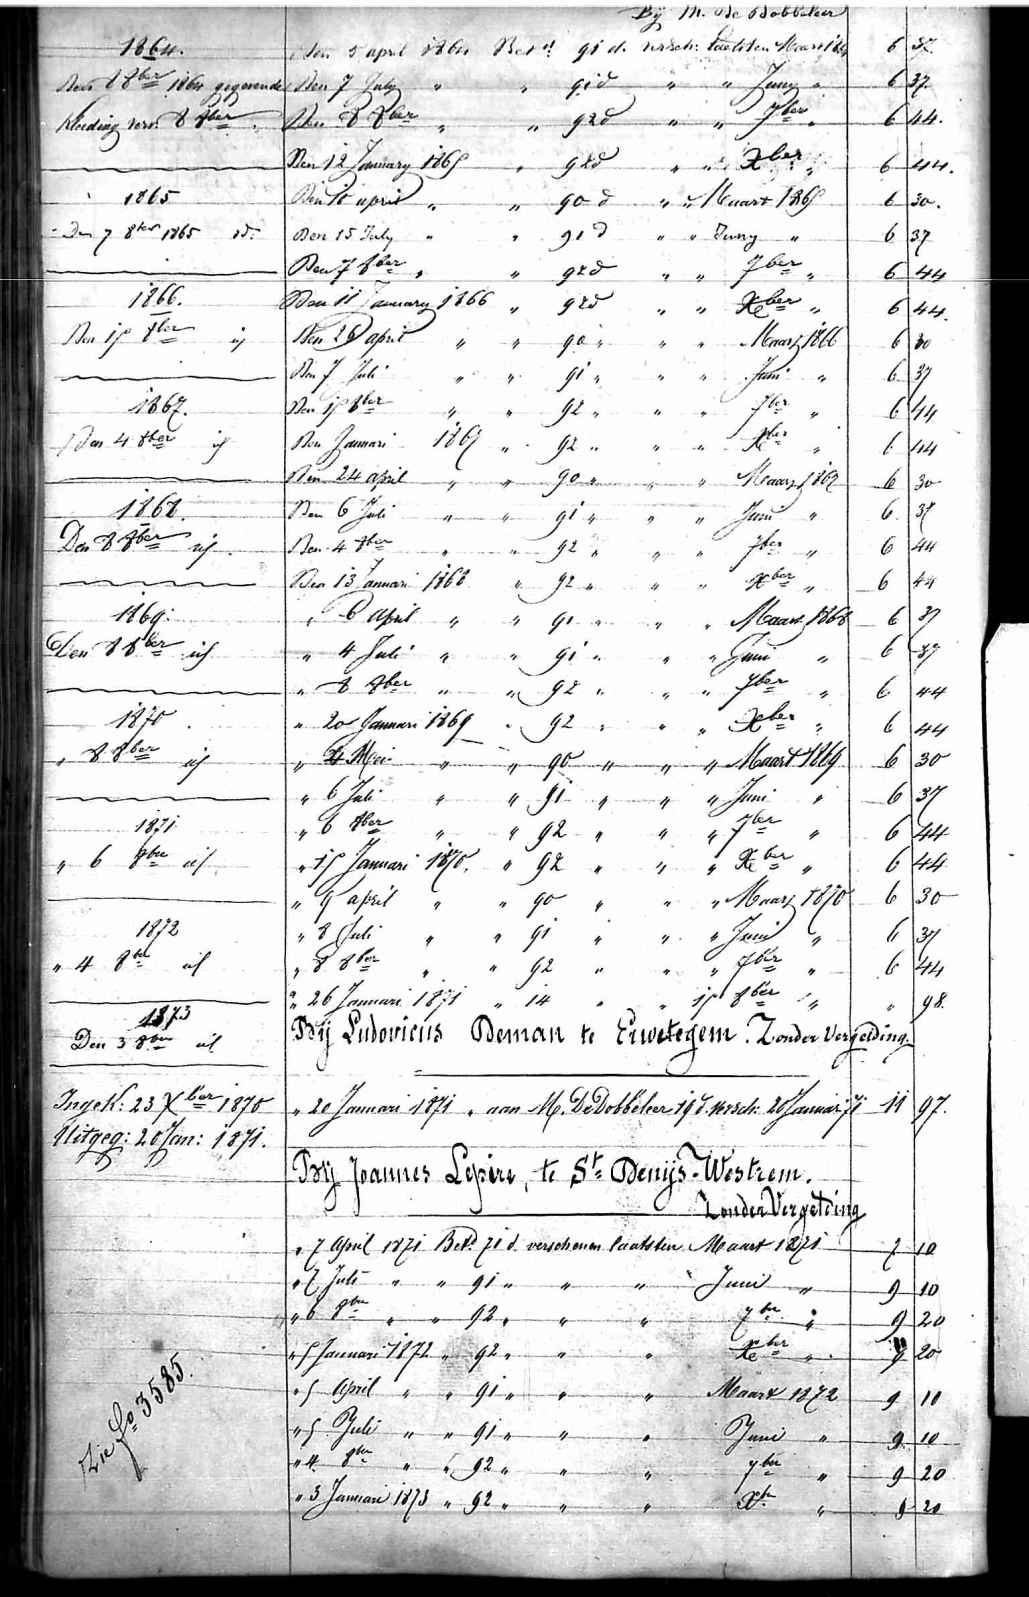 By M. De Dobbeleer
1864. Den 5 april 1864 Bet. 91 d. versch. laatsten Maart 1864 6 37.
Den 8 8ber 1864 gegevende Den 7 July " " 91 d " " Juny " 6 37.
kleeding voor 8 8ber. Den 8 8ber " " 92 d " " 7ber " 6 44.
Den 12 January 1865 " 92 d " " Xber " 6 44.
1865 Den 10 april " " 90 d " " Maart 1865 6 30.
Den 7 8ber 1865 id. Den 15 July " " 91 d " " Juny " 6 37
Den 7 8ber " " 92 d " " 7ber " 6 44
1866. Den 11 January 1866 " 92 d " " Xber " 6 44.
Den 15 8ber id Den 26 april " " 90 " " " Maart 1866 6 30
Den 7 Juli " " 91 " " " Juni " 6 37
1867. Den 15 8ber " " 92 " " " 7ber " 6 44
Den 4 8ber id Den Januari 1867 " 92 " " " Xber " 6 44
Den 24 april " " 90 " " " Maart 1867 6 30
1868. Den 6 Juli " " 91 " " " Juni " 6 37
Den 8 8ber id. Den 4 8ber " " 92 " " " 7ber " 6 44
Den 13 Januari 1868 " 92 " " " Xber " 6 44
1869. " 6 April " " 91 " " " Maart 1868 6 37
Den 8 8ber id " 4 Juli " " 91 " " " Juni " 6 37
" 8 8ber " " 92 " " " 7ber " 6 44
1870 " 20 Januari 1869 " 92 " " " Xber " 6 44
" 8 8ber id " 4 Mei " " 90 " " " Maart 1869 6 30
" 6 Juli " " 91 " " " Juni " 6 37
1871 " 6 8ber " " 92 " " " 7ber " 6 44
" 6 8ber id " 15 Januari 1870. " 92 " " " Xber " 6 44
" 9 april " " 90 " " " Maart 1870 6 30
1872 " 8 Juli " " 91 " " " Juni " 6 37
" 4 8ber id " 8 8ber " " 92 " " " 7ber " 6 44
" 26 Januari 1871 " 14 " " 15 8ber " " 98.
1873 Bij Ludovicus Deman te Erwetegem. Zonder Vergelding.
Den 3 8ber id
Ingek: 23 Xber 1870 " 20 Januari 1871 " aan M. De Dobbeleer 19 d. versch. 20 Januari 71 11 97.
Uitgeg: 20 Jan: 1871.
Bij Joannes Lepère, te St Denijs-Westrem.
Zonder Vergelding
" 7 April 1871 Bet. 71 d. verschenen laatsten Maart 1871 7 10
" 7 Juli " " 91 " " " Juni " 9 10
" 6 8ber " " 92 " " " 7ber " 9 20
" 5 Januari 1872 " 92 " " " Xber " 9 20
" 5 April " " 91 " " " Maart 1872 9 10
" 5 Juli " " 91 " " " Juni " 9 10
" 4 8ber " " 92 " " " 7ber " 9 20
" 3 Januari 1873 " 92 " " " Xber " 9 20
Zie fo 3585.